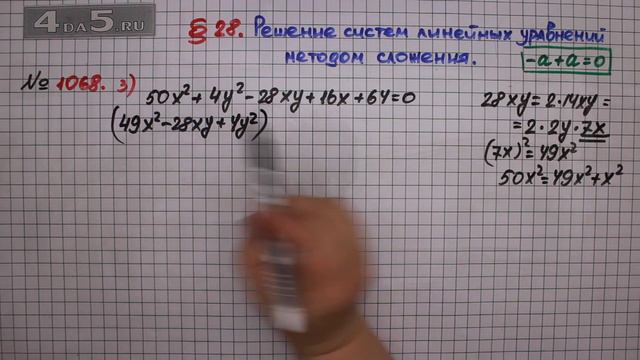 4DA5.RU
§ 28. Решение систем линейных уравнений
методом сложения.
-a+a=0
№ 1068. 3)
50x²+4y²-28xy+16x+64=0
(49x²-28xy+4y²)
28xy=2·14xy=
=2·2y·7x
(7x)²=49x²
50x²=49x²+x²